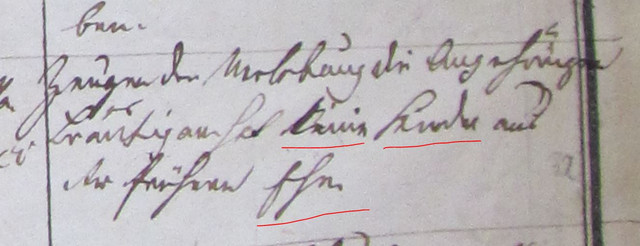 ben.
Zeugen der Meldung die Angehörigen
Bräutigam hat keine Kinder aus
der frühern Ehe.